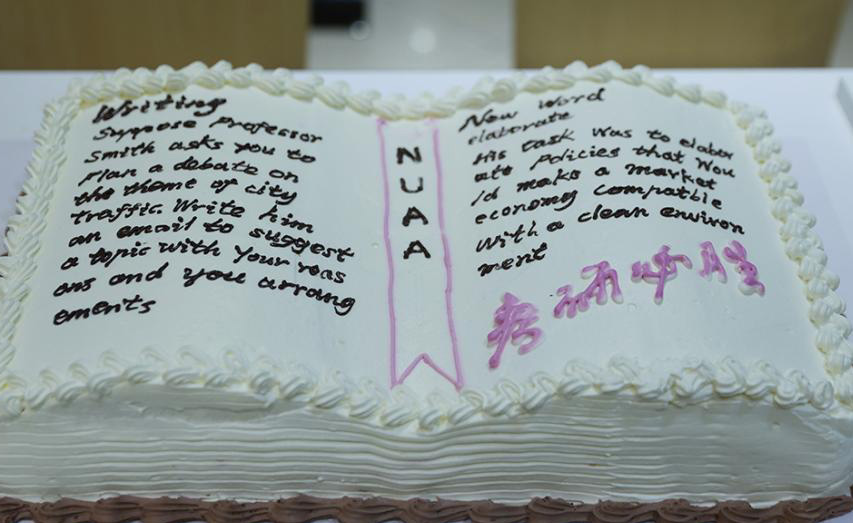 Writing
Suppose Professor
Smith asks you to
Plan a debate on
the theme of city
traffic. Write him
an email to suggest
a topic with Your reas
ons and you arrang
ements
N
U
A
A
New Word
elaborate
His task was to elabor
ate policies that Wou
ld make a market
economy compatble
with a clean environ
ment
考研必胜